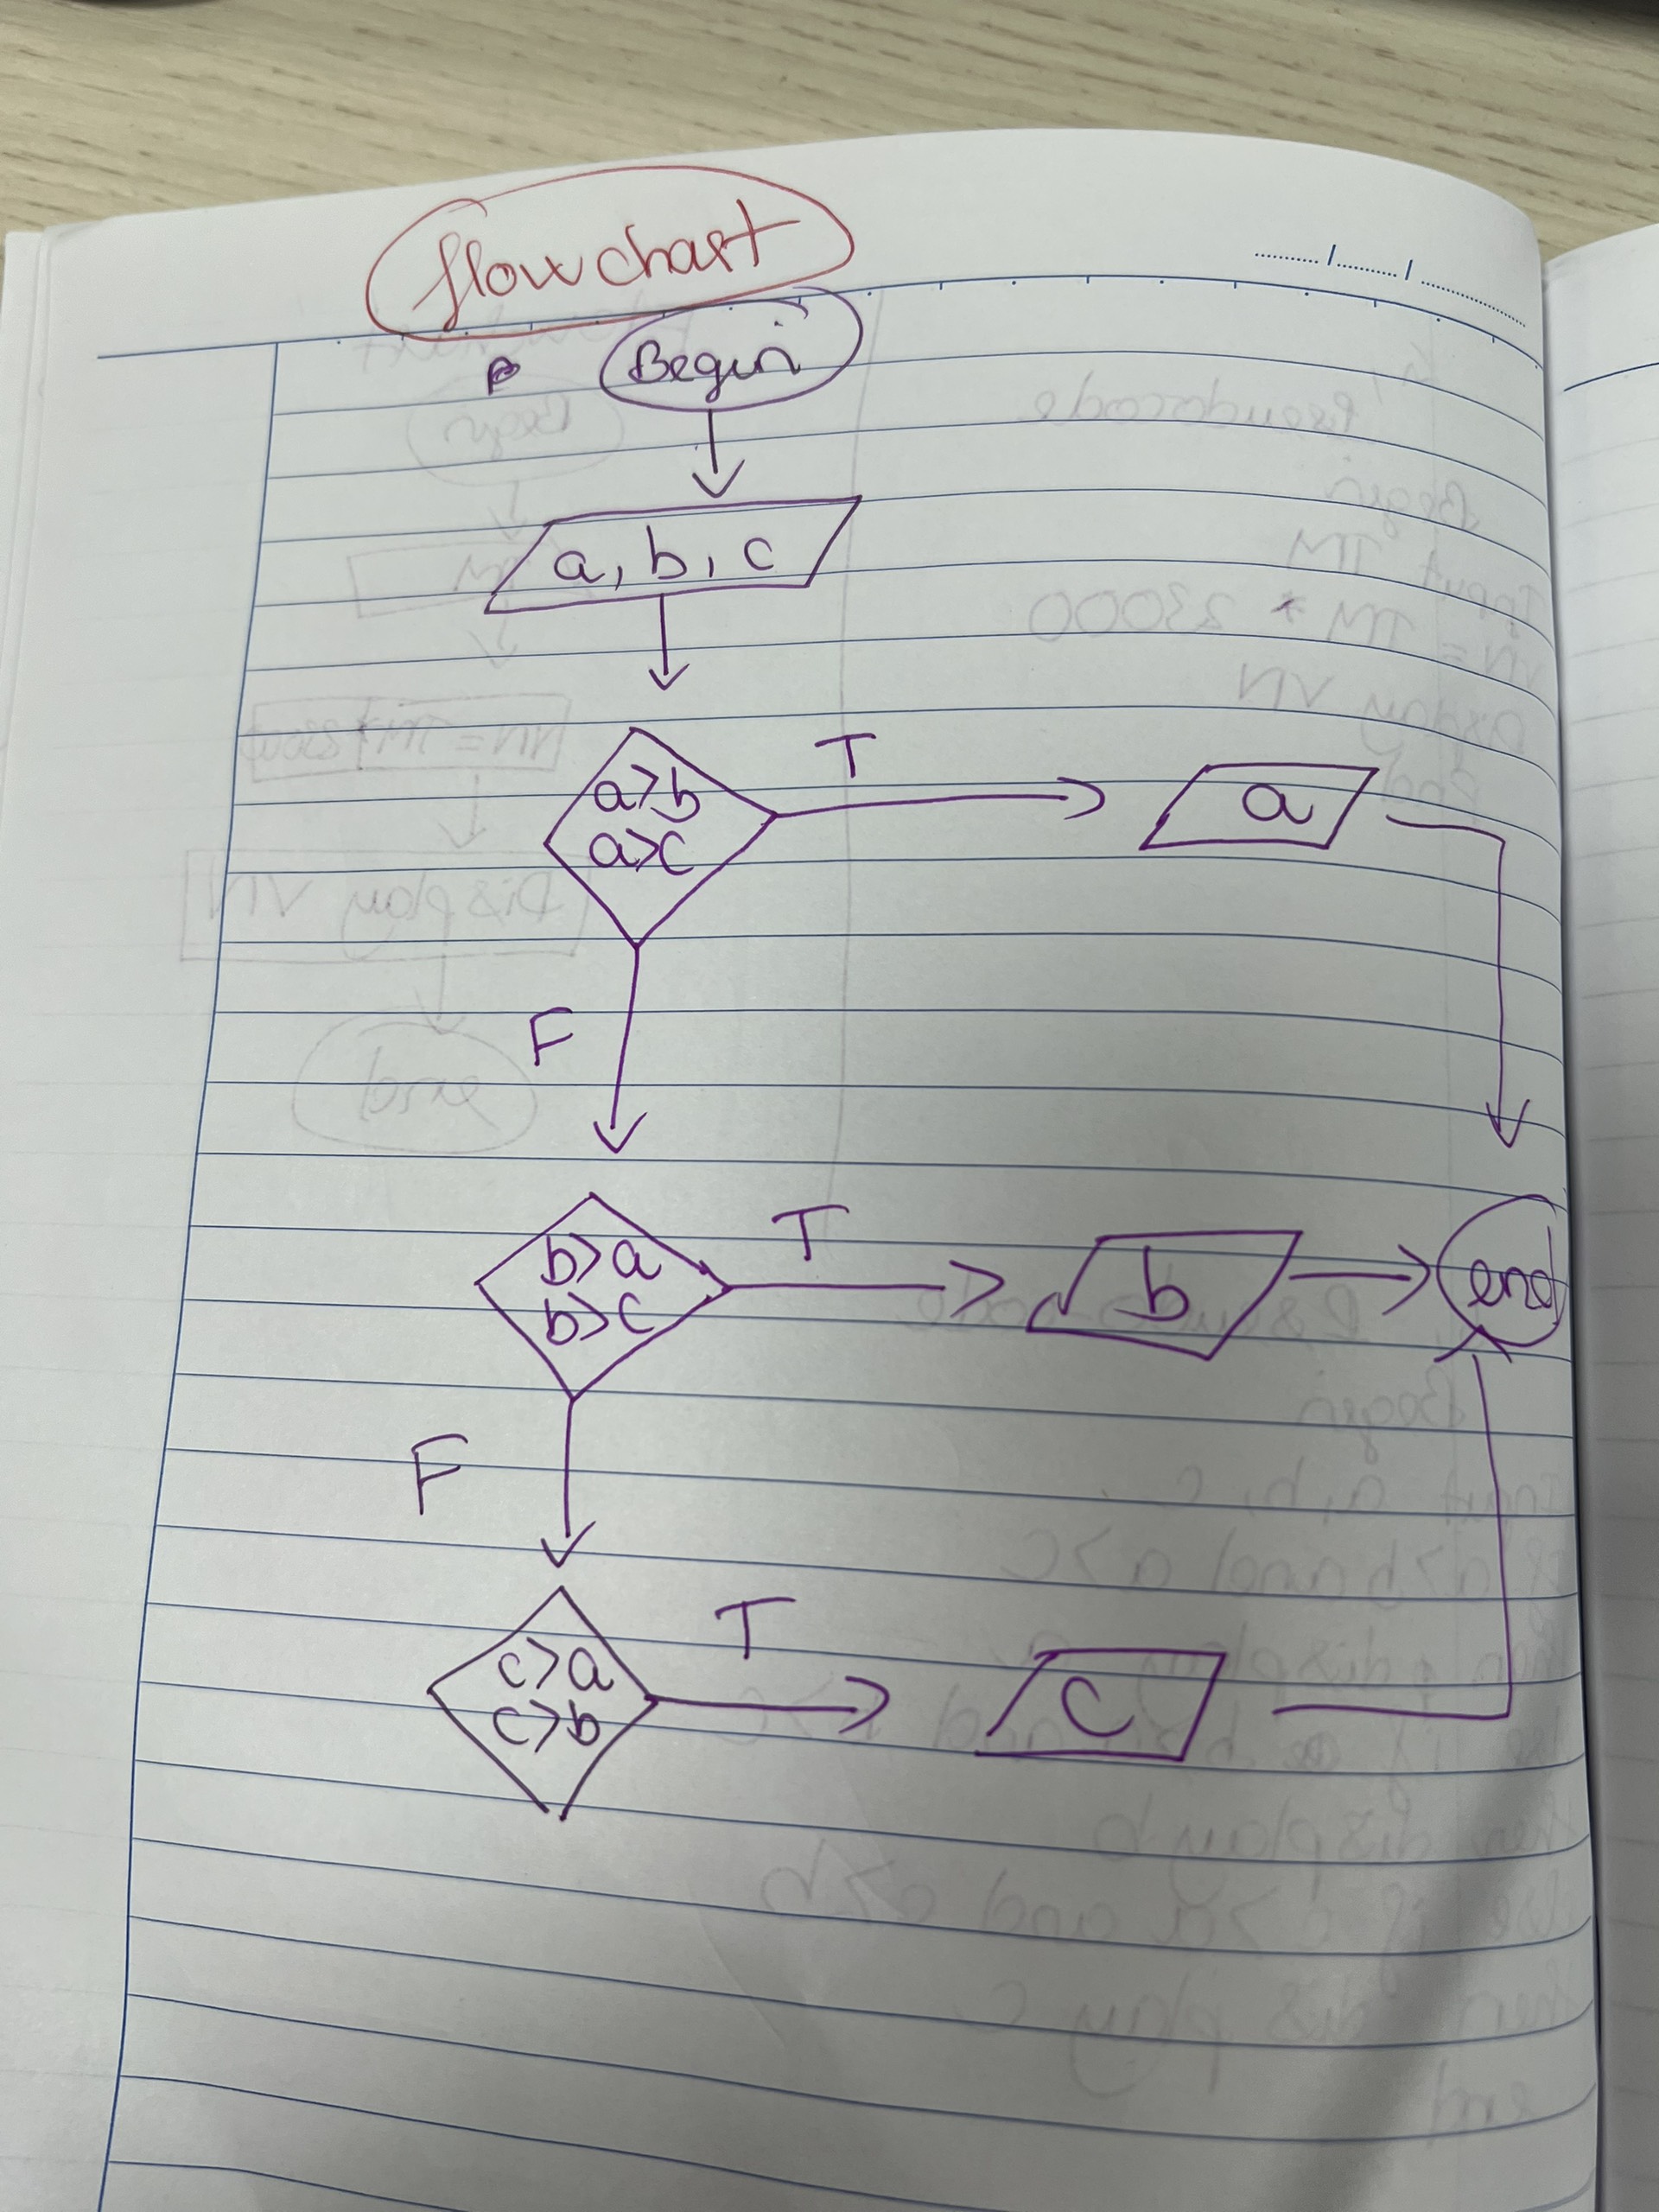 flowchart
Begin
a, b, c
a>b
a>c
T
a
F
b>a
b>c
T
b
end
F
c>a
c>b
T
c